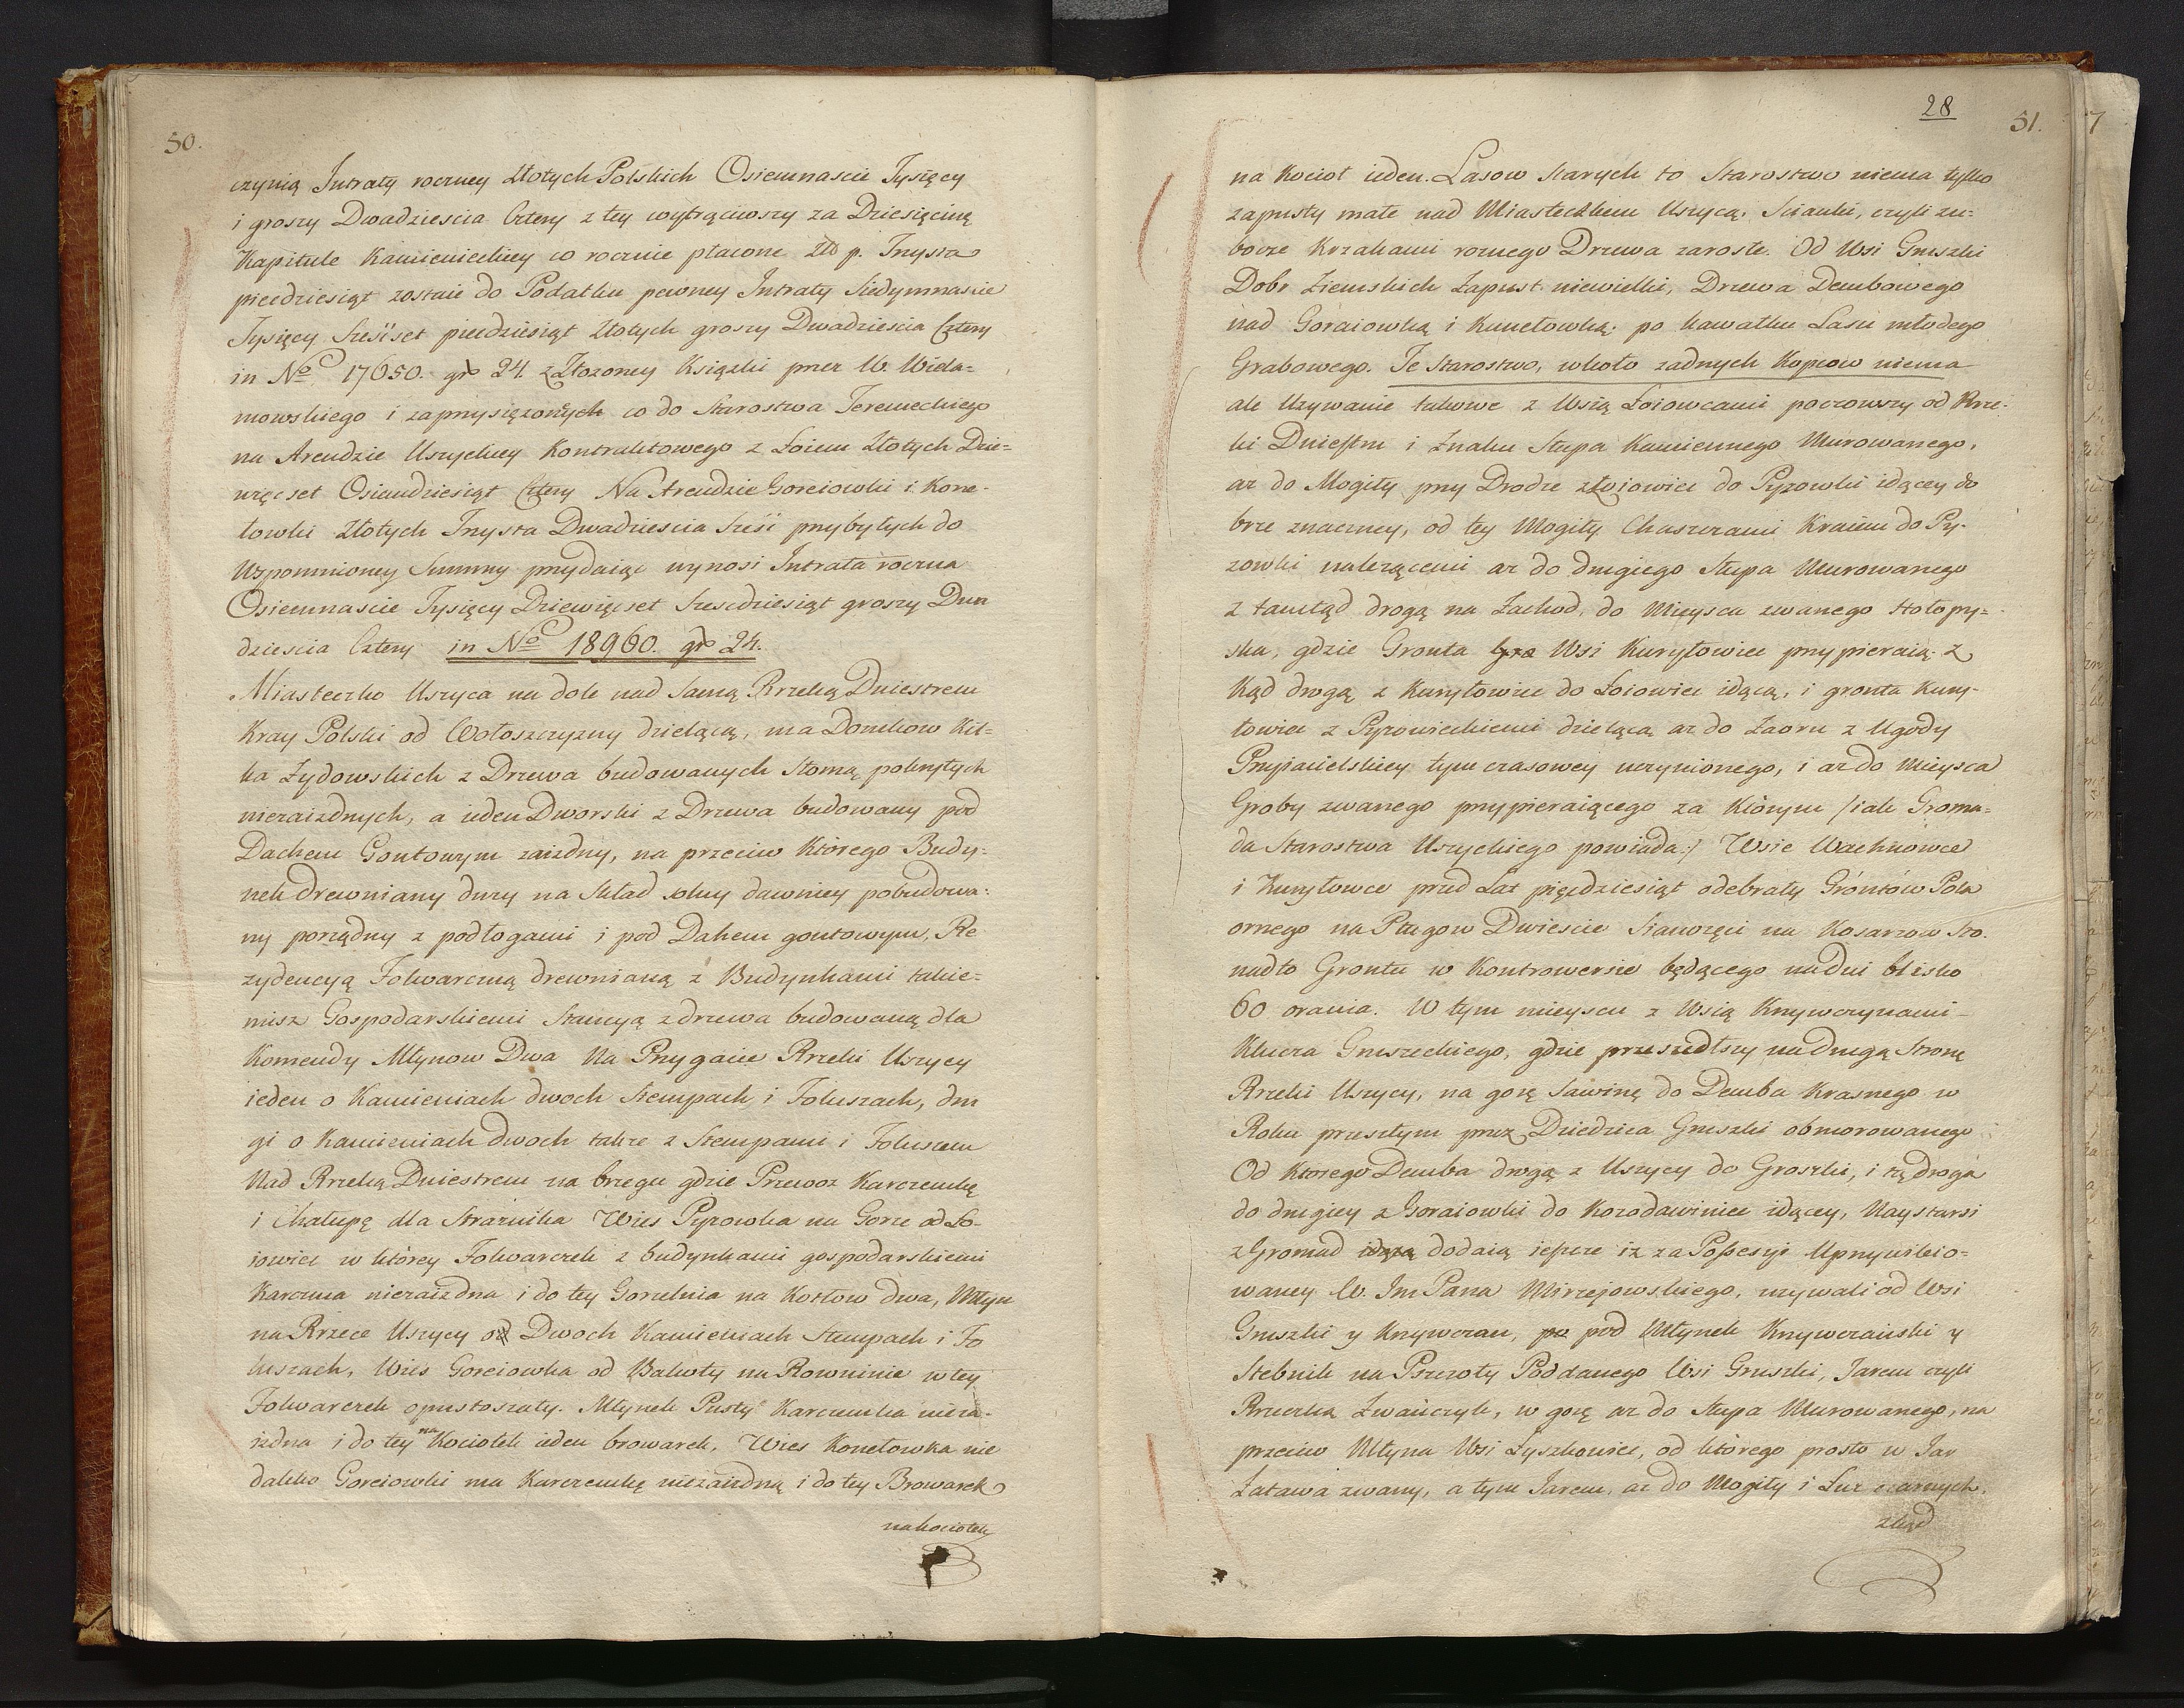 50.
czynią Intraty roczney Złotych Polskich Osiemnascie Tysięcy
i groszy Dwadziescia Cztery z tey wytrąciwszy za Dziesięcinę
Kapitule Kamienieckiey co rocznie płacone Zło p. Trysta
piedziesiąt zostaie do Podatku pewney Intraty Siedymnascie
Tysięcy Sześset piedziesiąt Złotych groszy Dwadziescia Cztery
in No 17650. gr 24. z Złozoney Ksiązki przez W. Wida-
mowskiego i zaprzysięzonych co do Starostwa Teremeckiego
na Arendzie Uszyckiey Kontraktowego z Łoiem Złotych Dzie=
więcset Osiemdziesiąt Cztery Na Arendzie Goreiowki i Kone-
towki Złotych Trzysta Dwadziescia Sześć przybyłych do
Wspomnioney Summy przydaiąc wynosi Intrata roczna
Osiemnascie Tysięcy Dziewięcset Szescdziesiąt groszy Dwa
dziescia Cztery in No 18960. gr 24.
Miasteczko Uszyca na dole nad samą Rzeką Dniestrem
Kray Polski od Wołoszczyzny dzielącą, ma Domkow Kil=
ka Żydowskich z Drzewa budowanych Słomą pokrytych
niezaiezdnych, a ieden Dworski z Drzewa budowany pod
Dachem Gontowym zaiezdny, na przeciw Którego Budy=
nek drewniany duży na Skład solny dawniey pobudowa=
ny porządny z podłogami i pod Dahem gontowym, Re
zydencyą Folwarczną drewnianą z Budynkami takie=
misz Gospodarskiemi Stancyą z drzewa budowaną dla
Komendy Młynow Dwa Na Przygacie Rzeki Uszycy
ieden o Kamieniach dwoch Stempach i Foluszach, dru
gi o Kamieniach dwoch takze z Stempami i Foluszem
Nad Rzeką Dniestrem na brzegu gdzie Przewoz Karczemkę
i Chałupę dla Straznika Wies Pyzowka na Gorze od Ło-
iowiec w którey Folwarczek z budynkami gospodarskiemi
Karczma niezaiezdna i do tey Gorzelnia na Kotłow dwa, Młyn
na Rzece Uszycy o Dwoch Kamieniach Stempach i Fo
luszach, Wies Goreiowka od Bakoty na Rowninie w tey
Folwarczek opustoszały. Młynek Pusty Karczemka nieza-
iezdna i do tey na Kociołek ieden browarek, Wies Konetowka nie
daleko Goreiowki ma Karczemkę niezaiezdną i do tey Browarek
na kociołek
28
51.
na Kocioł ieden. Lasow starych to Starostwo niema tylko
zapusty małe nad Miasteczkiem Uszycą. Scianki, czyli zu=
bocze Krzakami roznego Drzewa zarosłe. Od Wsi Gruszki
Dobr Ziemskich Zapust niewielki, Drzewa Dembowego
nad Goraiowką i Kunetowką po kawałku Lasu młodego
Grabowego. Te Starostwo, wkoło zadnych Kopcow niema
ale Uzywanie takowe z Wsią Łoiowcami począwszy od Rze-
ki Dniestru i Znaku Słupa Kamiennego Murowanego,
az do Mogiły przy Drodze z Łoiowiec do Pyzowki idącey do
brze znaczney, od tey Mogiły Chaszczami Kraiem do Py-
zowki nalezącemi az do drugiego Słupa Murowanego
z tamtąd drogą na Zachod, do Mieysca zwanego Stołopy=
ska, gdzie Gronta Wsi Kuryłowiec przypieraią. z
kąd drogą z Kuryłowiec do Łoiowiec idącą, i gronta Kury-
łowiec z Pyzowieckiemi dzielącą az do Zaoru z Ugody
Przyiacielskiey tym czasowey uczynionego, i az do Mieysca
Groby zwanego przypieraiącego za Którym /: iak Groma=
da Starostwa Uszyckiego powiada :/ Wsie Wachnowce
i Kuryłowce przed Lat pięćdziesiąt odebrały Gróntów Pola
ornego na Pługow Dwiescie Sianozęci na Kosarzow Sto.
nadto Grontu w Kontrowersie będącego na Dni blisko
60 orania. W tym mieyscu z Wsią Krzywczynami
Klucza Gruszeckiego, gdzie przeszedłszy na drugą Stronę
Rzeki Uszycy, na gorę Sawinę do Demba Krasnego w
Roku przeszłym przez Dziedzica Gruszki obmorowanego
Od Ktorego Demba drogą z Uszycy do Groszki, i tą drogą
do drugiey z Goraiowki do Kozodawiniec idącey, Naystarsi
z Gromad dodaią ieszcze iz za Possesyi Uprzywileio=
waney W. Im Pana Mirzejowskiego, uzywali od Wsi
Gruszki y Krzywczan, pod Młynek Krzywczański y
Stebnik na Pszczoły Poddanego Wsi Gruszki, Jarem czyli
Rzeczką Zwańczyk, w gorę az do Słupa Murowanego, na
przeciw Młyna Wsi Łyszkowiec, od którego prosto w Jar
Zatawa zwany, a tym Jarem, az do Mogiły i Łuz czarnych.
zkąd